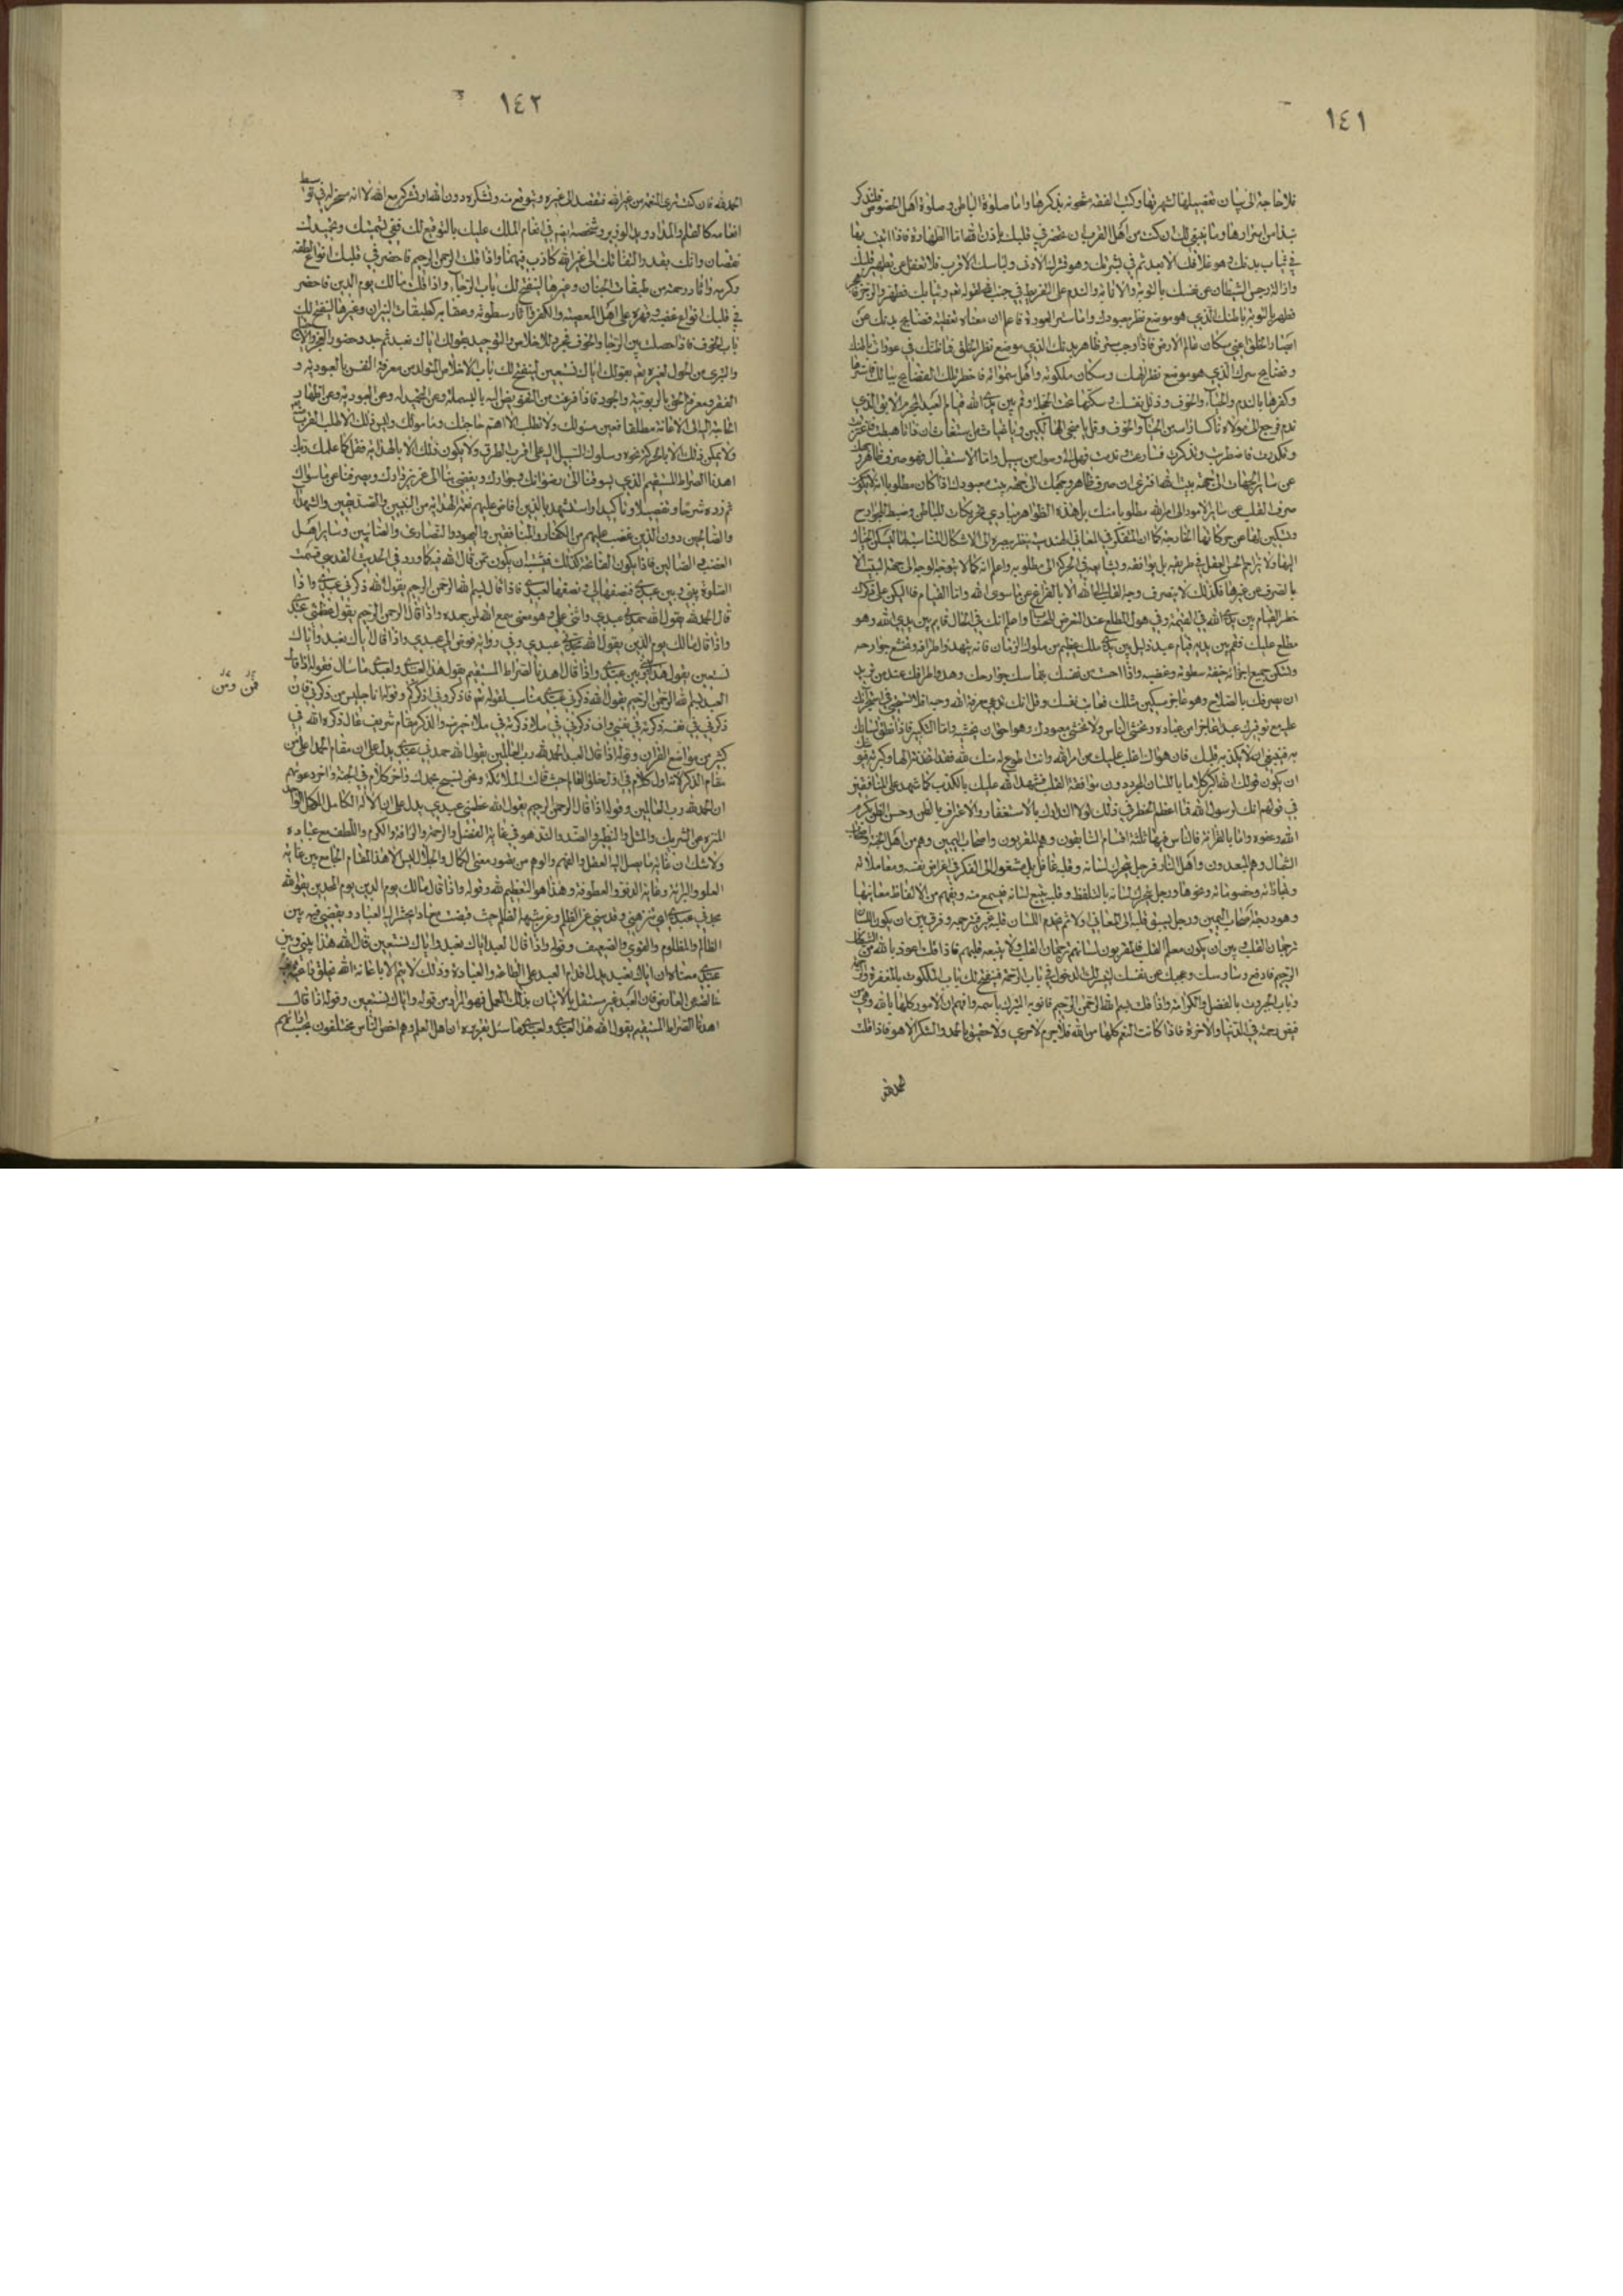 ١٤١
فلا حاجة الى بيان تفصيلها لشهرتها وكتب الفقه مشحونة بذكرها واما صلوة الباطن وصلوة اهل الخصوص فلنذكر
نبذا من اسرارها وما ينبغي لك ان كنت من اهل القرب ان تحضر في قلبك
في ثياب بدنك وهو غلافك الابعد ثم في بشرتك وهو قشرك الادنى ولباسك الاقرب فلا تغفل عن تطهير قلبك
وازالة رجس الشيطان عن نفسك بالتوبة والانابة والندم على التفريط في جنب الله لقوله تعالى وثيابك فطهر والرجز فاهجر
فطهر بالتوبة باطنك الذي هو موضع نظر معبودك واما ستر العورة فاعلم ان معناه تغطية فضايح بدنك عن
ابصار الخلق اعني سكان عالم الارض فاذا وجب ستر ظاهر بدنك الذي موضع نظر الخلق فما ظنك في عورات باطنك
وفضايح سرك الذي هو موضع نظر الهك وسكان ملكوته واهل سمواته فاحظر تلك الفضايح ببالك فاسترها
وكفرها بالندم والحياء والخوف وذلل نفسك وسكنها تحت الخجلة وقم بين يدي الله قيام العبد المجرم الابق الذي
ندم فرجع الى مولاه ناكسا راسه من الحياء والخوف وقل يا منجي الهالكين ويا غياث المستغيثين
عن ساير الجهات الى جهة بيت الله افترى ان صرف ظاهر وجهك الى جهة بيت معبودك اذا كان مطلوبا انه لا يكون
صرف القلب عن ساير الامور الى امر الله مطلوبا منك بل هذه الظواهر مبادي تحريكات للباطن وضبط للجوارح
وتسكين لها عن حركاتها الخارجة كما ان المتفكر في المعاني الهندسية ينظر ببصره الى الاشكال المناسبة لها
اليها ولا تزاحم الحس العقل في طريقه بل يوافقه ويشايعه في الحركة الى مطلوبه واعلم انه كما لا يتوجه الوجه الى جهة البيت الا
بالصرف عن غيرها فكذلك لا ينصرف وجه القلب الى الله الا بالفراغ عن ما سوى الله واما القيام فاليكن على ذكرك
خطر القيام بين يدي الله في القيمة وفي هول المطلع عند العرض للحساب واعلم انك في الحال قايم بين يدي الله وهو
مطلع عليك فقم بين يديه قيام عبد ذليل بين يدي ملك عظيم من ملوك الزمان فانه يهدو اطرافه وتخشع جوارحه
وتسكن جميع اجزائه خيفة سطوته وغضبه واذا احسست من نفسك بتماسك جوارحك وهدو اطرافك عند من تريد
ان يعرفك بالصلاح وهو عاجز مسكين مثلك فعاتب نفسك وقل انك تدعي معرفة الله وحبه افلا تستحي في اجترائك
عليه مع توقيرك عبدا عاجزا من عباده وتخشى الناس ولا تخشى معبودك وهو احق ان يخشى واما التكبير فاذا نطق لسانك
به فينبغي ان لا يكذبه قلبك فان هواك اغلب عليك من امر الله وانت اطوع له منك لله فقد اتخذته الها وكبرته
ان يكون قولك الله اكبر كلاما باللسان المجرد دون موافقة القلب فيشهد الله عليك بالكذب كما شهد على المنافقين
في قولهم انك لرسول الله فما اعظم الخطر في ذلك لولا التدارك بالاستغفار والاعتراف بالظن وحسن الظن بكرم
الله وعفوه واما بالقراءة فالناس فيها ثلثة اقسام السابقون وهم المقربون واصحاب اليمين وهم من اهل الجنة واصحاب
الشمال وهم المبعدون واهل النار فرجل يحرك لسانه وقلبه غافل بل مشغول الى الفكر في اغراض نفسه ومعاملاته
وتجاراته وخصوماته ونحوها ورجل يحرك لسانه بالتلفظ وقلبه يتبع لسانه فيسمع منه ويفهم من الالفاظ معانيها
وهو درجة اصحاب اليمين ورجل يسبق قلبه الى المعاني اولا ثم يخدم اللسان قلبه فيترجمه وفرق بين ان يكون اللسان
ترجمان القلب وبين ان يكون معلم القلب فالمقربون لسانهم ترجمان القلب ولا يتبعه قلبهم فاذا قلت اعوذ بالله من الشيطان
وباب الجبروت بالفضل والكرامة واذا قلت بسم الله الرحمن الرحيم فانو به التبرك باسمه وافهم ان الامور كلها بالله وهي من
فيض رحمته في الدنيا والاخرة فاذا كانت النعم كلها من الله فلا جرم لا حري ولا حقيق بالحمد والشكر الا هو فاذا قلت
الحمد لله
١٤٢
الحمد لله فان كنت ترى النعمة من غير الله فتقصد الى غيره وتتوقع منه وتشكره دون الله او تشركه مع الله لا انه سخر له في توسط
انعامه كالقلم والمداد ويد الوزير وشخصه ايضا في انعام الملك عليك بالتوقيع لك ففي تسميتك وتحميدك
نقصان وانك بقدر التفاتك الى غير الله كاذب فيهما واذا قلت الرحمن الرحيم فاحضر في قلبك انواع لطفه
وكرمه واثار رحمته من طبقات الجنان وغيرها لينفتح لك باب الرجاء واذا قلت مالك يوم الدين فاحضر
في قلبك انواع غضبه وقهره على اهل المعصية والكفر واثار سطوته وعقابه كطبقات النيران وغيرها لينفتح لك
باب الخوف فاذا حصلت بين الرجا والخوف فجرد الاخلاص والتوحيد بقولك اياك نعبد
والتبري من الحول لغيره تعالى بقولك اياك نستعين لينفتح لك باب الاخلاص المتولد من معرفة النفس بالعبودية و
الفقر ومعرفة الحق بالربوبية والجود فاذا فرغت من التفويض اليه بالبسملة وعن التحميد له وعن العبودية وعن اظهار
الحاجة اليه الى الاعانة مطلقا فعين مسئولك ولا تطلب الا اهم حاجتك ومامولك وليس ذلك الا طلب القرب منه
ولا يمكن ذلك الا بالحركة نحوه وسلوك السبيل اليه على اقرب الطرق ولا يكون ذلك الا بالهداية فقل كما علمك ربك
اهدنا الصراط المستقيم الذي يسوقنا الى رضوانك وجوارك ويفضي بنا الى عزيز ودادك ويصرفنا عن ما سواك
ثم زده شرحا وتفصيلا وتاكيدا واستشهد بالذين افاض عليهم نعمة الهداية من النبيين والصديقين والشهداء
والصالحين دون الذين غضب عليهم من الكفار والمنافقين واليهود والنصارى والصابئين وساير اهل
الغضب والضالين فاذا يكون الفاتحة كذلك فيشبه ان يكون ممن قال الله فيه كما ورد في الحديث القدسي قسمت
الصلوة بيني وبين عبدي فنصفها لي ونصفها لعبدي فاذا قال بسم الله الرحمن الرحيم يقول الله ذكرني عبدي واذا
قال الحمد لله يقول الله حمدني عبدي واثنى علي وهو معنى سمع الله لمن حمده واذا قال الرحمن الرحيم يقول عظمني عبدي
واذا قال مالك يوم الدين يقول الله مجدني عبدي وفي رواية فوض الي عبدي واذا قال اياك نعبد واياك
نستعين يقول هذا بيني وبين عبدي واذا قال اهدنا الصراط المستقيم يقول هذا لعبدي ولعبدي ما سال فقوله اذا قال
العبد بسم الله الرحمن الرحيم يقول الله ذكرني عبدي مناسب لقوله تعالى فاذكروني اذكركم وقوله انا جليس من ذكرني فان
ذكرني في نفسه ذكرته في نفسي وان ذكرني في ملا ذكرته في ملا خير منه والذكر مقام شريف عال ذكره الله في
كثير من مواضع القران وقوله اذا قال العبد الحمد لله رب العالمين يقول الله حمدني عبدي يدل على ان مقام الحمد اعلى من
مقام الذكر لانه اول كلام في اول خلق العالم حيث قالت الملائكة ونحن نسبح بحمدك واخر كلام في الجنة واخر دعويهم
ان الحمد لله رب العالمين وقوله اذا قال الرحمن الرحيم يقول الله عظمني عبدي يدل على ان الاله الكامل المكمل
المنزه عن الشريك والمثل والنظير والضد والند هو في غاية الفضل والرحمة والرافة والكرم واللطف مع عباده
ولا شك ان غاية ما يصل اليه العقل والفهم والوهم من تصور معنى الكمال والجلال ليس الا هذا المقام الجامع بين غاية
العلو والبرائة وغاية الدنو والعطوفة وهذا هو التعظيم لله وقوله واذا قال مالك يوم الدين يقول الله
مجدني عبدي اي نزهني وقدسني عن الظلم
الظالم والمظلوم والقوي والضعيف وقوله واذا قال العبد اياك نعبد واياك نستعين قال الله هذا بيني وبين
عبدي معناه ان اياك نعبد يدل على اقدام العبد على الطاعة والعبادة وذلك لا يتم الا باعانة الله
العبد غير مستقل بالاتيان بذلك العمل فهو المراد من قوله واياك نستعين وقوله اذا قال
اهدنا الصراط المستقيم يقول الله هذا لعبدي ولعبدي ما سئل تقريره ان اهل العلم وهم اخص الناس مختلفون